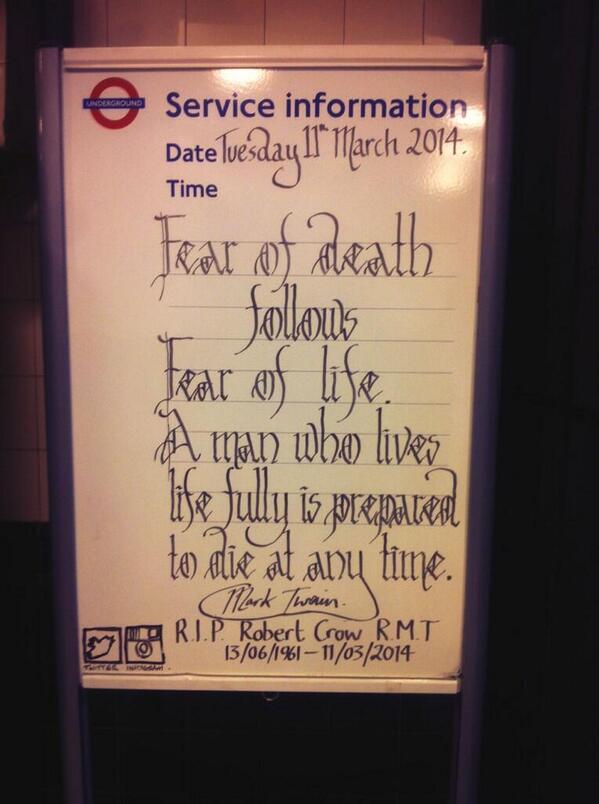 UNDERGROUND
Service information
Date Tuesday 11th March 2014.
Time
Fear of death
follows
Fear of life.
A man who lives
life fully is prepared
to die at any time.
Mark Twain.
R.I.P. Robert Crow R.M.T
13/06/1961 – 11/03/2014
TWITTER INSTAGRAM.